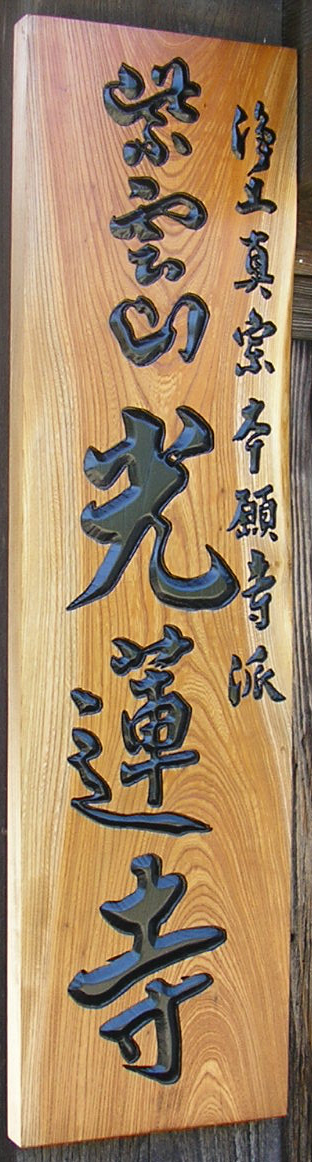 浄土真宗本願寺派
紫雲山光蓮寺